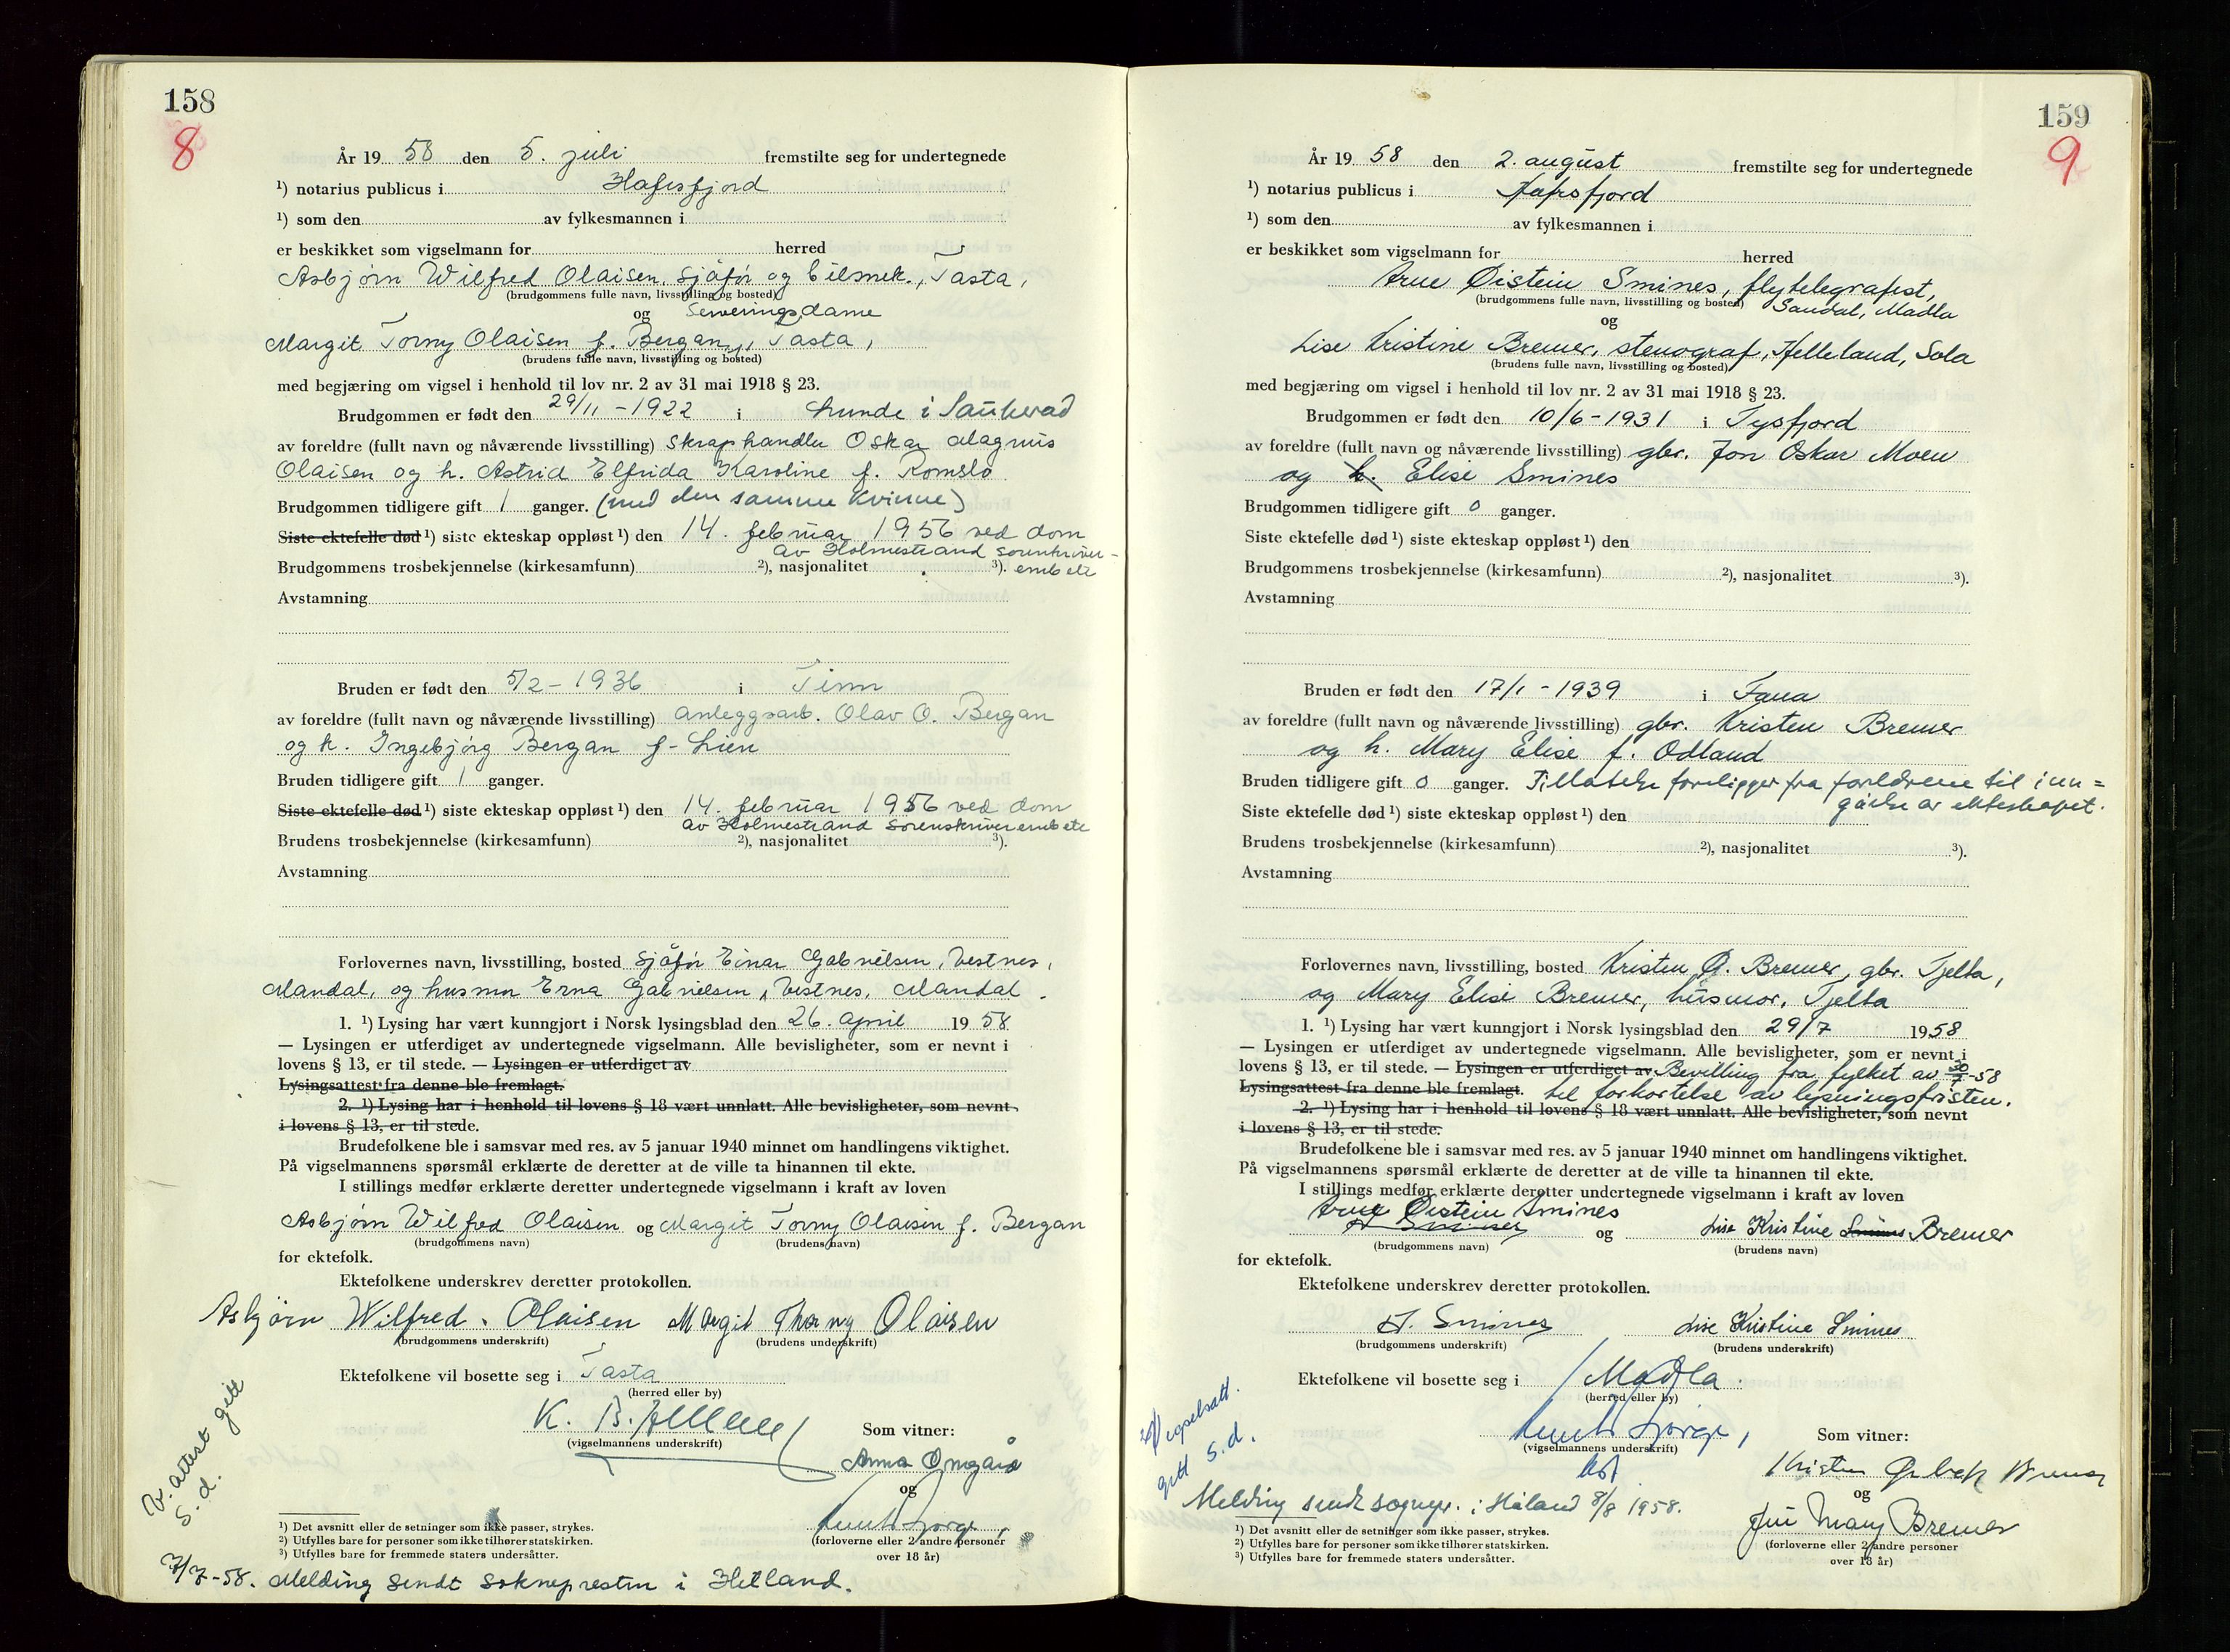 158
8
År 19 58 den 5. juli fremstilte seg for undertegnede
¹) notarius publicus i Hafrsfjord
¹) som den av fylkesmannen i
er beskikket som vigselmann for herred
Asbjørn Wilfred Olaisen, sjåfør og bilmek., Tasta,
(brudgommens fulle navn, livsstilling og bosted)
og Serveringsdame
Margit Torny Olaisen f. Bergan, Tasta,
(brudens fulle navn, livsstilling og bosted)
med begjæring om vigsel i henhold til lov nr. 2 av 31 mai 1918 § 23.
Brudgommen er født den 29/11 - 1922 i Lunde i Sauherad
av foreldre (fullt navn og nåværende livsstilling) Skraphandler Oskar Magnus
Olaisen og h. Astrid Elfrida Karoline f. Romslo
Brudgommen tidligere gift 1 ganger. (med den samme kvinne)
Siste ektefelle død ¹) siste ekteskap oppløst ¹) den 14. februar 1956 ved dom
av Holmestrand sorenskriver-
Brudgommens trosbekjennelse (kirkesamfunn) ²), nasjonalitet ³). embete
Avstamning
Bruden er født den 5/2 - 1936 i Tinn
av foreldre (fullt navn og nåværende livsstilling) anleggsarb. Olav O. Bergan
og h. Ingebjørg Bergan f. Lien
Bruden tidligere gift 1 ganger.
Siste ektefelle død ¹) siste ekteskap oppløst ¹) den 14. februar 1956 ved dom
av Holmestrand sorenskriverembete
Brudens trosbekjennelse (kirkesamfunn) ²), nasjonalitet ³).
Avstamning
Forlovernes navn, livsstilling, bosted Sjåfør Einar Gabrielsen, Vestnes,
Mandal, og husmor Erna Gabrielsen, Vestnes, Mandal.
1. ¹) Lysing har vært kunngjort i Norsk lysingsblad den 26. april 19 58
— Lysingen er utferdiget av undertegnede vigselmann. Alle bevisligheter, som er nevnt i
lovens § 13, er til stede. — Lysingen er utferdiget av
Lysingsattest fra denne ble fremlagt.
2. ¹) Lysing har i henhold til lovens § 18 vært unnlatt. Alle bevisligheter, som nevnt
i lovens § 13, er til stede.
Brudefolkene ble i samsvar med res. av 5 januar 1940 minnet om handlingens viktighet.
På vigselmannens spørsmål erklærte de deretter at de ville ta hinannen til ekte.
I stillings medfør erklærte deretter undertegnede vigselmann i kraft av loven
Asbjørn Wilfred Olaisen og Margit Torny Olaisen f. Bergan
(brudgommens navn) (brudens navn)
for ektefolk.
Ektefolkene underskrev deretter protokollen.
Asbjørn Wilfred. Olaisen Margit Thorny Olaisen
(brudgommens underskrift) (brudens underskrift)
Ektefolkene vil bosette seg i Tasta
(herred eller by)
K. B.
(vigselmannens underskrift) Som vitner:
Anna
og
(forloverne eller 2 andre personer
over 18 år)
V. attest gitt
s. d.
¹) Det avsnitt eller de setninger som ikke passer, strykes.
²) Utfylles bare for personer som ikke tilhører statskirken.
³) Utfylles bare for fremmede staters undersåtter.
7/7-58. Melding sendt soknepresten i Hetland.
159
9
År 19 58 den 2. august fremstilte seg for undertegnede
¹) notarius publicus i Hafrsfjord
¹) som den av fylkesmannen i
er beskikket som vigselmann for herred
Arne Øistein Smines, flytelegrafist,
(brudgommens fulle navn, livsstilling og bosted) Sandal, Madla
og
Lise Kristine Bremer, stenograf, Helleland, Sola
(brudens fulle navn, livsstilling og bosted)
med begjæring om vigsel i henhold til lov nr. 2 av 31 mai 1918 § 23.
Brudgommen er født den 10/6 - 1931 i Tysfjord
av foreldre (fullt navn og nåværende livsstilling) gbr. Jon Oskar Moen
og h. Elise Smines
Brudgommen tidligere gift 0 ganger.
Siste ektefelle død ¹) siste ekteskap oppløst ¹) den
Brudgommens trosbekjennelse (kirkesamfunn) ²), nasjonalitet ³).
Avstamning
Bruden er født den 17/1 - 1939 i Fana
av foreldre (fullt navn og nåværende livsstilling) gbr. Kristen Bremer
og h. Mary Elise f. Odland
Bruden tidligere gift 0 ganger. Tillatelse foreligger fra foreldrene til inn=
gåelse av ekteskapet.
Siste ektefelle død ¹) siste ekteskap oppløst ¹) den
Brudens trosbekjennelse (kirkesamfunn) ²), nasjonalitet ³).
Avstamning
Forlovernes navn, livsstilling, bosted Kristen Ø. Bremer, gbr. Tjelta,
og Mary Elise Bremer, husmor, Tjelta
1. ¹) Lysing har vært kunngjort i Norsk lysingsblad den 29/7 1958
— Lysingen er utferdiget av undertegnede vigselmann. Alle bevisligheter, som er nevnt i
lovens § 13, er til stede. — Lysingen er utferdiget av Bevilling fra fylket av 30/7-58
Lysingsattest fra denne ble fremlagt. til forkortelse av lysningsfristen.
2. ¹) Lysing har i henhold til lovens § 18 vært unnlatt. Alle bevisligheter, som nevnt
i lovens § 13, er til stede.
Brudefolkene ble i samsvar med res. av 5 januar 1940 minnet om handlingens viktighet.
På vigselmannens spørsmål erklærte de deretter at de ville ta hinannen til ekte.
I stillings medfør erklærte deretter undertegnede vigselmann i kraft av loven
Arne Øistein Smines
A Smines og Lise Kristine Smines Bremer
(brudgommens navn) (brudens navn)
for ektefolk.
Ektefolkene underskrev deretter protokollen.
A. Smines Lise Kristine Smines
(brudgommens underskrift) (brudens underskrift)
Ektefolkene vil bosette seg i Madla
(herred eller by)
(vigselmannens underskrift) Som vitner:
Kristen Bremer
og
Mary Bremer
(forloverne eller 2 andre personer
over 18 år)
Vigselsatt.
gitt s.d.
Melding sendt sogнepr. i Håland 8/8 1958.
¹) Det avsnitt eller de setninger som ikke passer, strykes.
²) Utfylles bare for personer som ikke tilhører statskirken.
³) Utfylles bare for fremmede staters undersåtter.